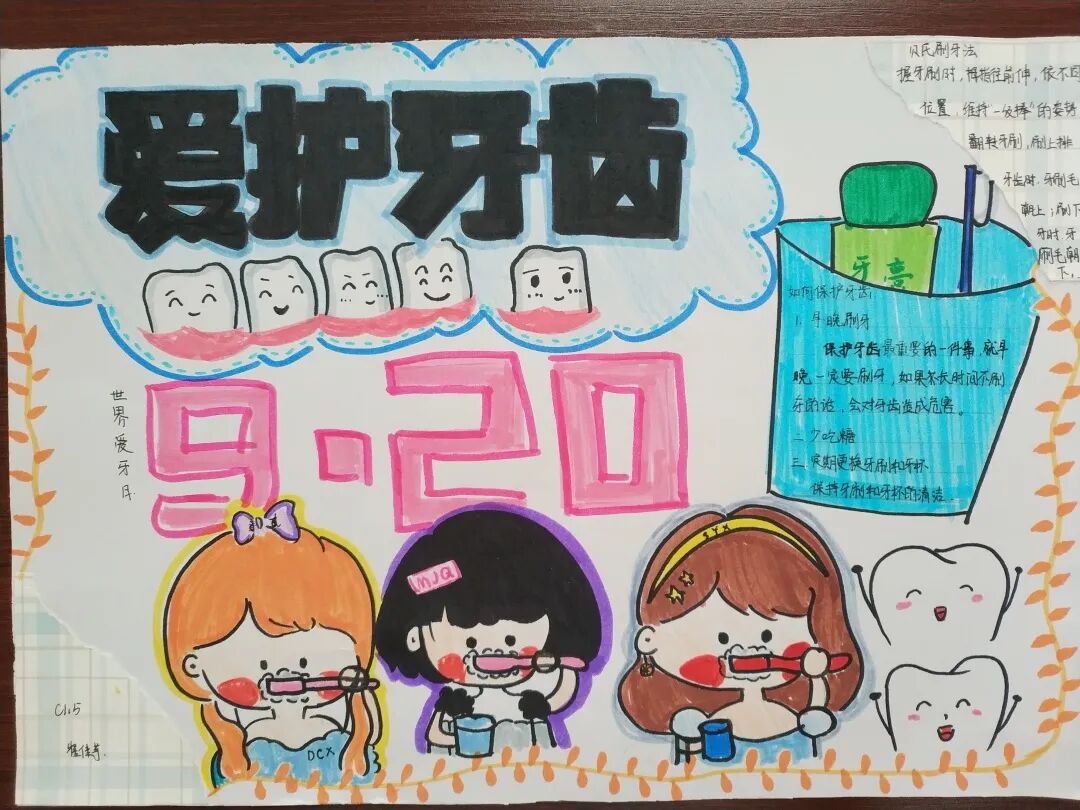 爱护牙齿
贝氏刷牙法
握牙刷时，拇指往前伸，依不同
位置，维持
的姿势
翻转牙刷，刷上排
牙齿时，牙刷毛
朝上；刷下
牙时，牙
刷毛朝
下，
牙亮
如何保护牙齿：
1. 早晚刷牙
保护牙齿最重要的一件事，就早
晚一定要刷牙，如果长时间不刷
牙的话，会对牙齿造成危害。
二 少吃糖
三 定期更换牙刷和牙杯
保持牙刷和牙杯的清洁
9.20
世界爱牙日
MJQ
SYX
DCX
C1.5